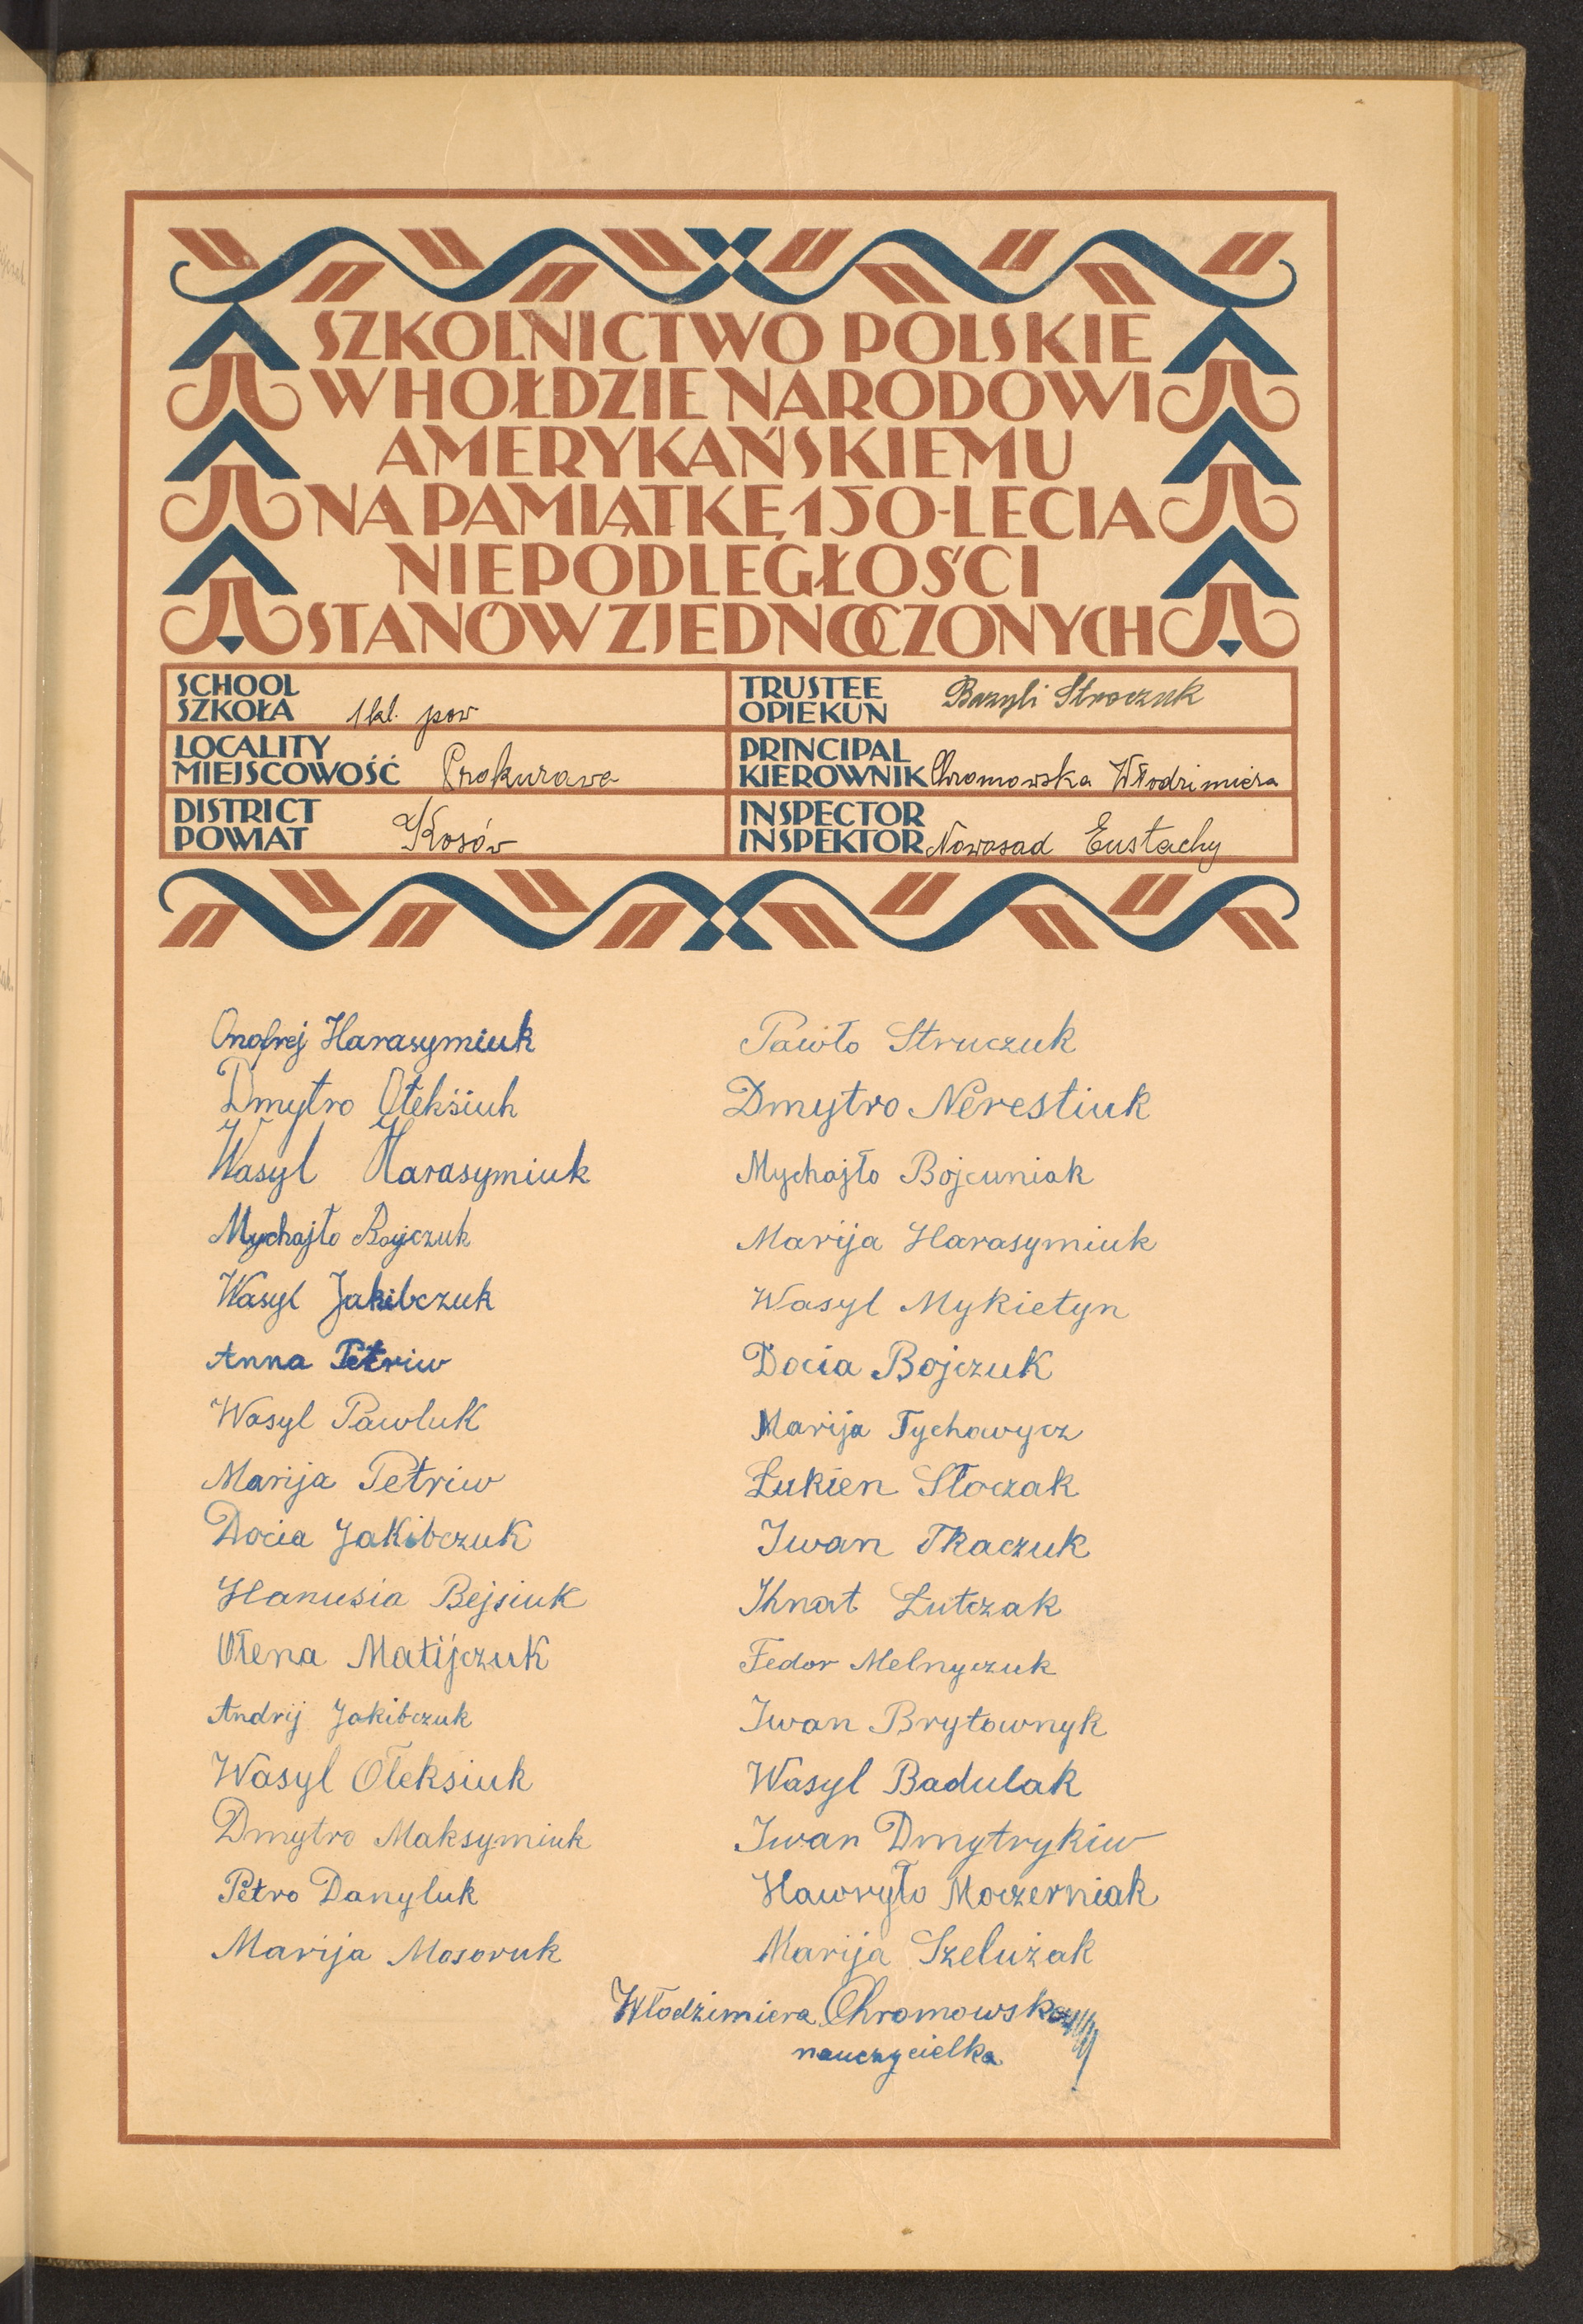 SZKOLNICTWO POLSKIE
W HOŁDZIE NARODOWI
AMERYKAŃSKIEMU
NA PAMIĄTKĘ 150-LECIA
NIEPODLEGŁOŚCI
STANÓW ZJEDNOCZONYCH
SCHOOL
SZKOŁA 1 kl. pow
LOCALITY
MIEJSCOWOŚĆ Prokurawa
DISTRICT
POWIAT Kosów
TRUSTEE
OPIEKUN Bazyli Stroczuk
PRINCIPAL
KIEROWNIK Chromowska Włodzimiera
INSPECTOR
INSPEKTOR Nowosad Eustachy
Onofrej Harasymiuk
Dmytro Ołeksiuk
Wasyl Harasymiuk
Mychajło Bojczuk
Wasyl Jakibczuk
Anna Petriw
Wasyl Pawluk
Marija Petriw
Docia Jakibczuk
Hanusia Bejsiuk
Ołena Matijczuk
Andrij Jakibczuk
Wasyl Ołeksiuk
Dmytro Maksymiuk
Petro Danyluk
Marija Mosoruk
Pawło Struczuk
Dmytro Nerestiuk
Mychajło Bojcuniak
Marija Harasymiuk
Wasyl Mykietyn
Docia Bojczuk
Marija Tychowycz
Łukien Słoczak
Iwan Tkaczuk
Ihnat Łutczak
Fedor Melnyczuk
Iwan Brytownyk
Wasyl Badulak
Iwan Dmytrykiw
Hawryło Moczerniak
Marija Szelużak
Włodzimiera Chromowska
nauczycielka